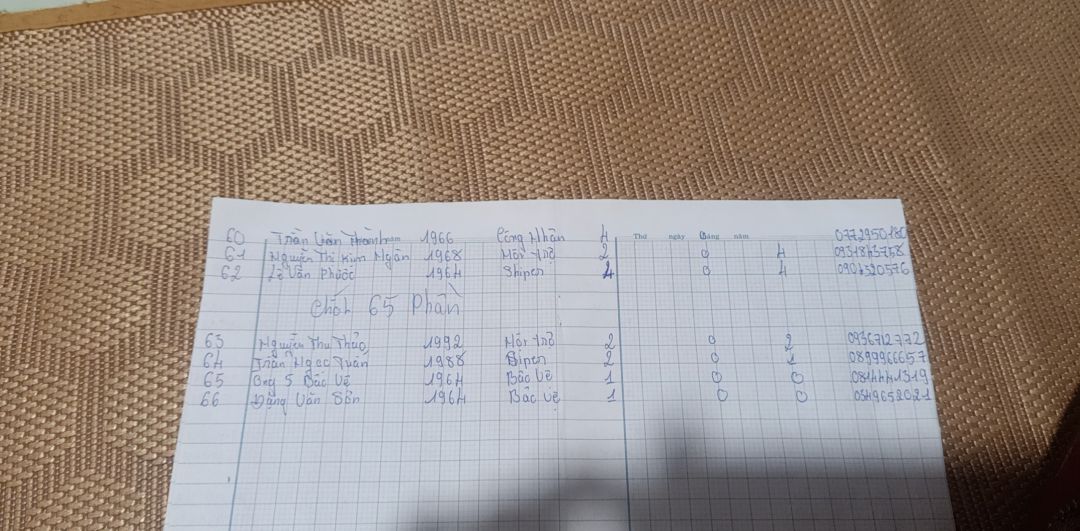 60 Trần Văn Thành năm 1966 Công Nhân 4 Thứ ngày tháng năm 0 0772950180
61 Nguyễn Thị Kim Ngân 1968 Nội trợ 2 0 4 0931843758
62 Lê Văn Phước 1964 Shiper 4 0 4 0904520576
Chốt 65 Phần
63 Nguyễn Thu Thảo 1992 Nội trợ 2 0 2 0936712772
64 Trần Ngọc Tuấn 1988 Siper 2 0 1 0899966657
65 Ông 5 Bảo Vệ 1964 Bảo Vệ 1 0 0
66 Đặng Văn Sơn 1964 Bảo Vệ 1 0 0 0349652021